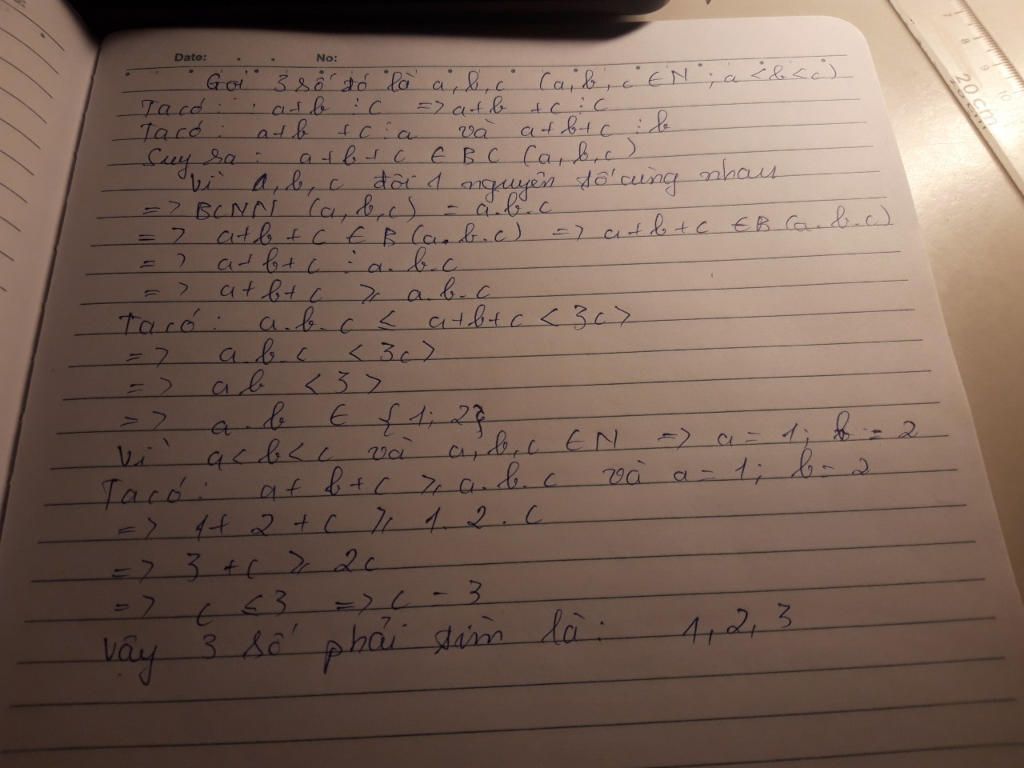 Date: No:
Gọi 3 số đó là a, b, c (a, b, c ∈ N ; a < b < c)
Ta có : a+b ⋮ c => a+b +c ⋮ c
Ta có : a+b +c ⋮ a và a+b+c ⋮ b
Suy ra : a+b+c ∈ BC (a, b, c)
Vì a, b, c đôi 1 nguyên tố cùng nhau
=> BCNN (a, b, c) = a.b.c
=> a+b+c ∈ B (a.b.c) => a+b+c ∈ B (a.b.c)
=> a+b+c ⋮ a.b.c
=> a+b+c ≥ a.b.c
Ta có : a.b.c ≤ a+b+c < 3c >
=> a.b.c < 3c >
=> a b < 3 >
=> a.b ∈ { 1; 2}
Vì a < b < c và a, b, c ∈ N => a = 1; b = 2
Ta có : a+ b+c ≥ a.b.c và a = 1; b = 2
=> 1+ 2 + c ≥ 1.2.c
=> 3 + c ≥ 2c
=> c ≤ 3 => c = 3
Vậy 3 số phải tìm là : 1, 2, 3
20 cm